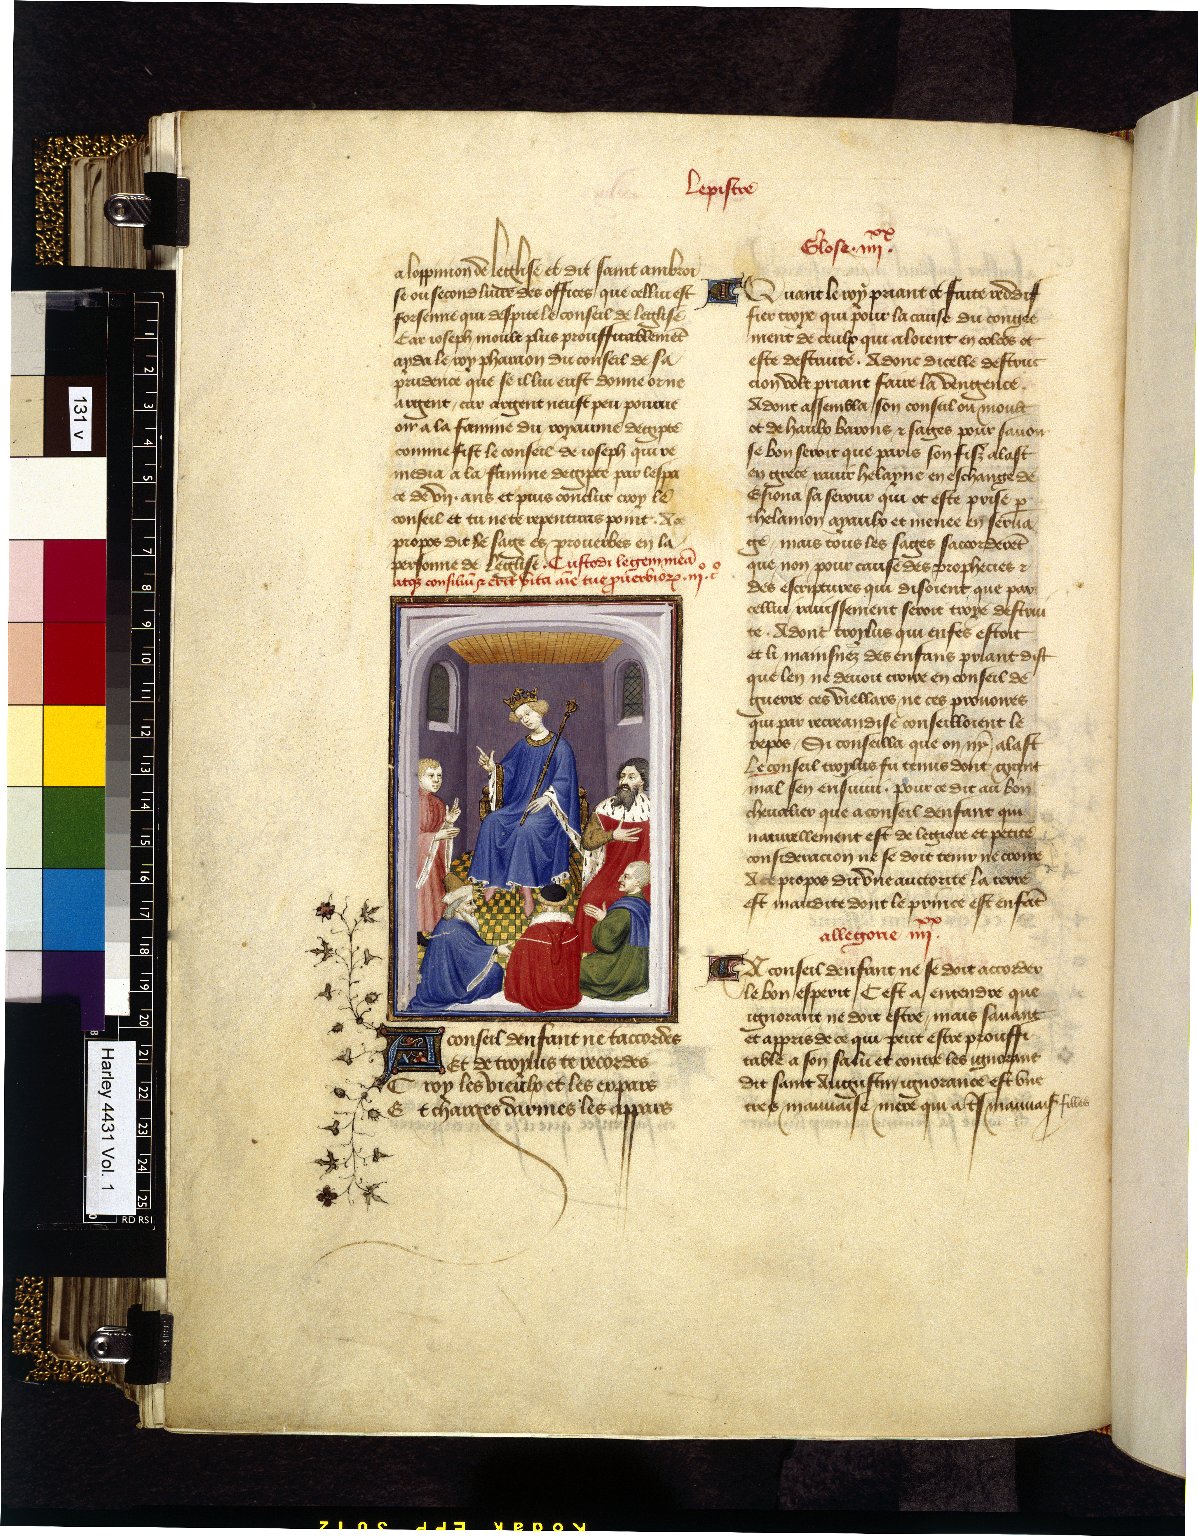 Lepistre
a loppinion de leglise et dit saint ambroi
se ou second livre des offices que cellui est
forsenne qui despite le conseil de leglise
Car ioseph moult plus prouffitablement
ayda le roy pharaon du conseil de sa
prudence que se il lui eust donne or ne
argent, car argent neust peu pourve
oir a la famine du royaume degipte
comme fist le conseil de ioseph qui re
media a la famine degipte par lespa
ce de vii. ans et puis conclut croy le
conseil et tu ne te repentiras point. A ce
propos dit le sage es proverbes en la
personne de leglise. Custodi legem meā
atqz consiliū & erit vita aīe tue
A conseil denfant ne taccordes
Et de troylus te recordes
Croy les vieulx et les expars
Et charges darmes les appars
Glose. iiii xx.
Quant le roy priant ot faite reddif
fier troye qui pour la cause du conge
ment de ceulx qui aloient en colcos ot
este destruite. Adonc dicelle destruc
cion volt priant faire la vengence.
Adont assembla son conseil ou moult
ot de haulx barons & sages pour savoir
se bon seroit que paris son filz alast
en grece ravir helayne en eschange de
Esiona sa serour qui ot este prise p
thelamon ayaulx et menee en serva
ge, mais tous les sages saccorderēt
que non pour cause des prophecies &
des escriptures qui disoient que par
cellui ravissement seroit troye destrui
te. Adont troylus qui enfes estoit
et li mainsnez des enfans priant dist
que len ne devoit croire en conseil de
guerre ces viellars ne ces provoires
qui par recreandise conseilloient le
repos. Si conseilla que on y alast
Le conseil troylus fu tenus dont grant
mal sen ensuivi. pour ce dit au bon
chevalier que a conseil denfant qui
naturellement est de legiere et petite
consideracion ne se doit tenir ne croire
A ce propos dit une auctorite la terre
est maudite dont le prince est enfāt
allegorie iiii xx.
A conseil denfant ne se doit accorder
le bon esperit Cest a entendre que
ignorant ne doit estre, mais savant
et appris de ce qui peut estre prouffi
table a son salu et contre les ignorant
dit saint Augustin ignorance est une
tres mauvaise mere qui a mauvaises filles
131 v
Harley 4431 Vol. 1
1
2
3
4
5
7
8
9
10
11
12
13
14
15
16
17
18
19
20
21
22
23
24
25
Kodak EPP 5012